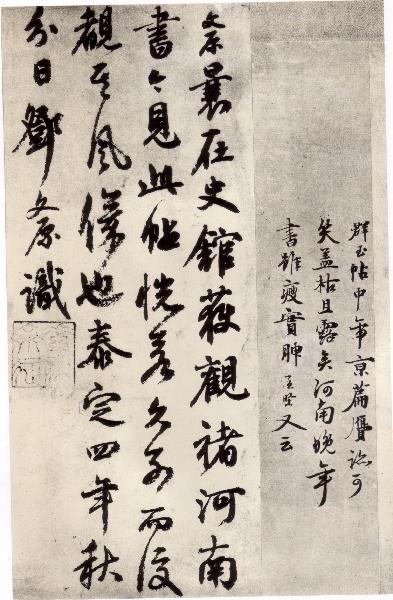 群玉帖中帝京篇贋跡可
笑蓋枯且露矣河南晚年
書雖瘦實腴孟堅又云
文原曩在史館獲觀褚河南
書今見此帖恍若久別而復
覩其風儀也泰定四年秋
分日鄧文原識